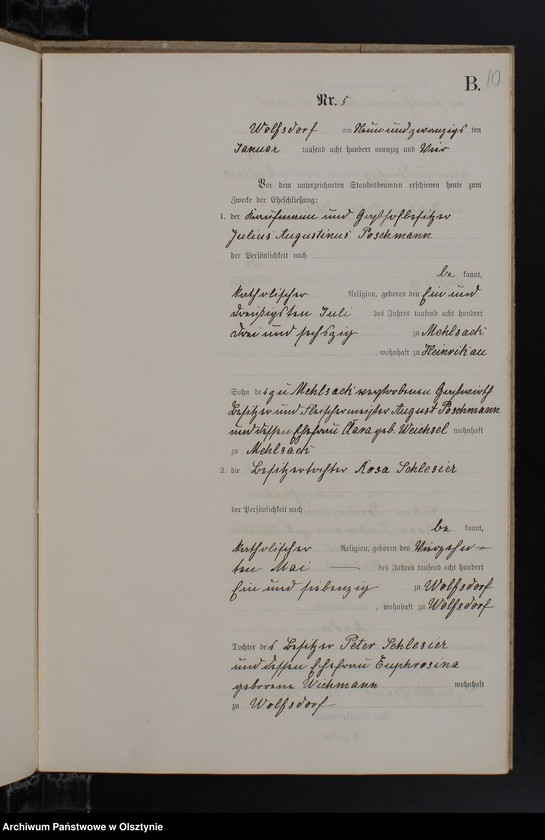 B. 10
Nr. 5
Wolfsdorf am Neunundzwanzigs ten
Januar tausend acht hundert neunzig und Vier
Vor dem unterzeichneten Standesbeamten erschienen heute zum
Zwecke der Eheschließung:
1. der Kaufmann und Gasthofbesitzer
Julius Augustinus Poschmann
der Persönlichkeit nach
be kannt,
katholischer Religion, geboren den Ein und
dreißigsten Juli des Jahres tausend acht hundert
Drei und sechszig zu Mehlsack
, wohnhaft zu Heinrikau
Sohn des zu Mehlsack verstorbenen Gastwirth
Besitzer und Fleischermeister August Poschmann
und dessen Ehefrau Clara geb. Weichsel wohnhaft
zu Mehlsack
2. die Besitzertochter Rosa Schlesier
der Persönlichkeit nach
be kannt,
katholischer Religion, geboren den Vierzehn-
ten Mai des Jahres tausend acht hundert
Ein und siebenzig zu Wolfsdorf
, wohnhaft zu Wolfsdorf
Tochter des Besitzer Peter Schlesier
und dessen Ehefrau Euphrosina
geborene Wichmann wohnhaft
zu Wolfsdorf
Archiwum Państwowe w Olsztynie